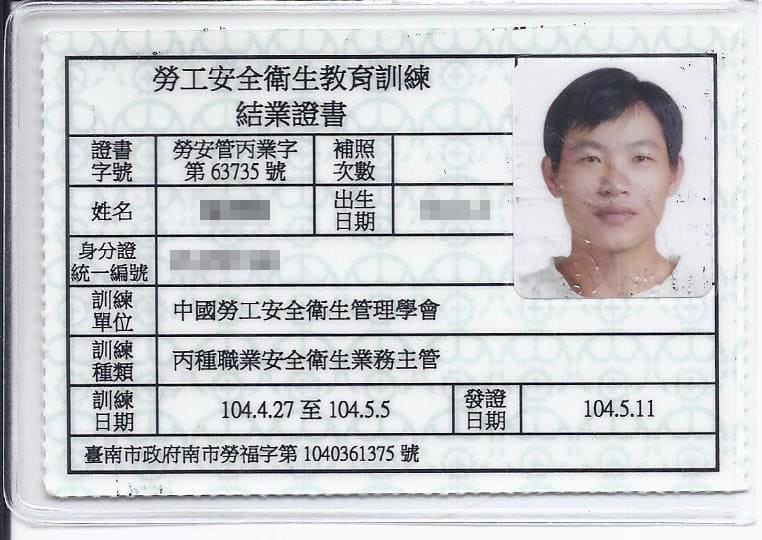 勞工安全衛生教育訓練
結業證書
證書字號 勞安管丙業字第 63735 號 補照次數
姓名 出生日期
身分證統一編號
訓練單位 中國勞工安全衛生管理學會
訓練種類 丙種職業安全衛生業務主管
訓練日期 104.4.27 至 104.5.5 發證日期 104.5.11
臺南市政府南市勞福字第 1040361375 號